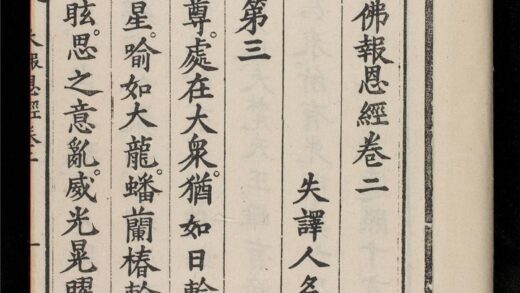 佛報恩經卷二
失譯人名
第三
尊。處在大衆猶如日輪
星。喻如大龍。蟠蘭椿幹
眩。思之意亂。威光晃曜
大報恩經卷二 一